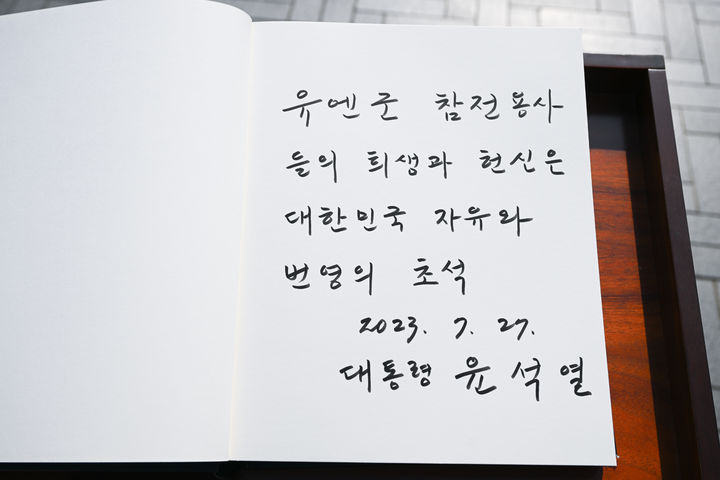 유엔군 참전용사
들의 희생과 헌신은
대한민국 자유와
번영의 초석
2023. 7. 27.
대통령 윤석열